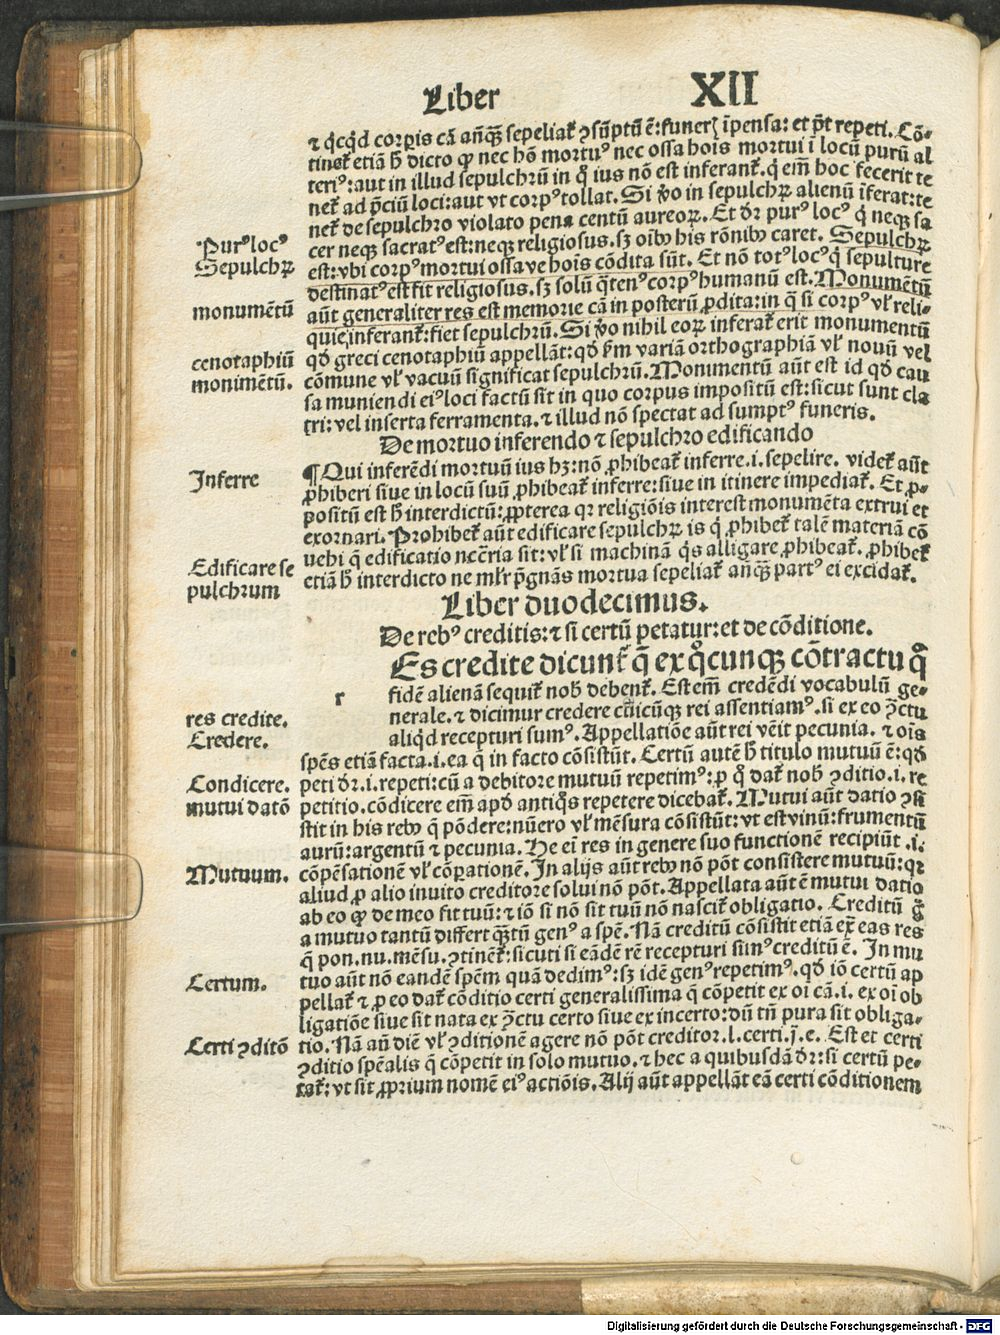 Liber XII
⁊ qͥcqͥd corꝑis cā añꝗ̄ sepeliat̃ ꝯsūptū ē: funerꝭ īpensa: et p̄t repeti. Cō⸗
tinet̃ etiā ħ dicto ꝙ nec hoē mortuꝰ nec ossa hois mortui ī locū purū al
teriꝰ: aut in illud sepulchrū in q̄ ius nō est inferant̃. q̄ em̄ hoc fecerit te
net̃ ad p̄ciū loci: aut vt corpꝰ tollat. Si ꝟo in sepulchꝝ alienū īferat: te
net̃ de sepulchro violato pena centū aureoꝝ. Et dr̄ purꝰ locꝰ qͥ neqꝫ sa
cer neqꝫ sacratꝰ est: neqꝫ religiosus. sꝫ oībꝰ his rōnibꝰ caret. Sepulchꝝ
est: vbi corpꝰ mortui ossave hois cōdita sūt. Et nō totꝰ locꝰ qͥ sepulture
destinatꝰ est fit religiosus. sꝫ solū q̄tenꝰ corpꝰ humanū est. Monumētū
aūt generaliter res est memorie cā in posterū ꝓdita: in q̄ si corpꝰ vl̓ reli⸗
quie inferant̃: fiet sepulchrū. Si ꝟo nihil eoꝝ inferat̃ erit monumentū
qd̄ greci cenotaphiū appellāt: qd̄ ẜm variā orthographiā vl̓ nouū vel
cōmune vl̓ vacuū significat sepulchrū. Monumentū aūt est id qd̄ cau
sa muniendi eiꝰ loci factū sit in quo corpus impositū est: sicut sunt cla
tri: vel inserta ferramenta. ⁊ illud nō spectat ad sumptꝰ funeris.
De mortuo inferendo ⁊ sepulchro edificando
¶ Qui inferēdi mortuū ius hꝫ: nō ꝓhibeat̃ inferre. i. sepelire. videt̃ aūt
ꝓhiberi siue in locū suū ꝓhibeat̃ inferre: siue in itinere impediat̃. Et ꝓ⸗
positū est ħ interdictū: ꝓpterea qꝛ religiōis interest monumēta extrui et
exornari. Prohibet̃ aūt edificare sepulchꝝ is qͥ ꝓhibet̃ talē materiā cō
uehi q̄ edificatio ncc̄ria sit: vl̓ si machinā qͥs alligare ꝓhibeat̃. ꝓhibet̃
etiā ħ interdicto ne ml̓r p̄gnās mortua sepeliat̃ añꝗ̄ partꝰ ei excidat̃.
Liber duodecimus.
De rebꝰ creditis: ⁊ si certū petatur: et de cōditione.
r
Es credite dicunt̃ q̄ ex qͦcunqꝫ cōtractu qͦ
fidē alienā sequit̃ nob̄ debent̃. Est em̄ credēdi vocabulū ge⸗
nerale. ⁊ dicimur credere cuicūqꝫ rei assentiamꝰ. si ex eo ꝯctu
aliqͥd recepturi sumꝰ. Appellatiōe aūt rei vēit pecunia. ⁊ oīs
spēs etiā facta. i. ea q̄ in facto cōsistūt. Certū autē ħ titulo mutuū ē: qd̄
peti dr̄. i. repeti: cū a debitore mutuū repetimꝰ: ꝑ qͦ dat̃ nob̄ ꝯditio. i. re
petitio. cōdicere em̄ apd̄ antiqͦs repetere dicebat̃. Mutui aūt datio ꝯsi
stit in his rebꝰ q̄ pōdere: nūero vl̓ mēsura cōsistūt: vt est vinū: frumentū
aurū: argentū ⁊ pecunia. He ei̅ res in genere suo functionē recipiūt. i.
cōpēsationē vl̓ cōꝑationē. In alijs aūt rebꝰ nō pōt consistere mutuū: qꝛ
aliud ꝓ alio inuito creditore solui nō pōt. Appellata aūt ē mutui datio
ab eo ꝙ de meo fit tuū: ⁊ iō si nō sit tuū nō nascit̃ obligatio. Creditū ꝟo
a mutuo tantū differt ꝗ̄tū genꝰ a spē. Nā creditū cōsistit etiā ext̃ eas res
q̄ pon. nu. mēsu. ꝯtinent̃: sicuti si eādē rē recepturi simꝰ creditū ē. In mu
tuo aūt nō eandē spēm quā dedimꝰ: sꝫ idē genꝰ repetimꝰ. qd̄ iō certū ap
pellat̃ ⁊ ꝓ eo dat̃ cōditio certi generalissima q̄ cōpetit ex oi cā. i. ex oī ob
ligatiōe siue sit nata ex ꝯctu certo siue ex incerto: dū tn̄ pura sit obliga⸗
tio. Nā aū diē vl̓ ꝯditionē agere nō pōt creditor. l. certi. j. e. Est et certi
ꝯditio spēalis q̄ cōpetit in solo mutuo. ⁊ hec a quibusdā dr̄: si certū pe⸗
tat̃: vt sit ꝓprium nomē eiꝰ actiōis. Alij aūt appellāt eā certi cōditionem
Purꝰ locꝰ
Sepulchꝝ
monumētū
cenotaphiū
monimētū.
Inferre
Edificare se
pulchrum
res credite.
Credere.
Condicere.
mutui datō
Mutuum.
Certum.
Certi ꝯditō
Digitalisierung gefördert durch die Deutsche Forschungsgemeinschaft - DFG